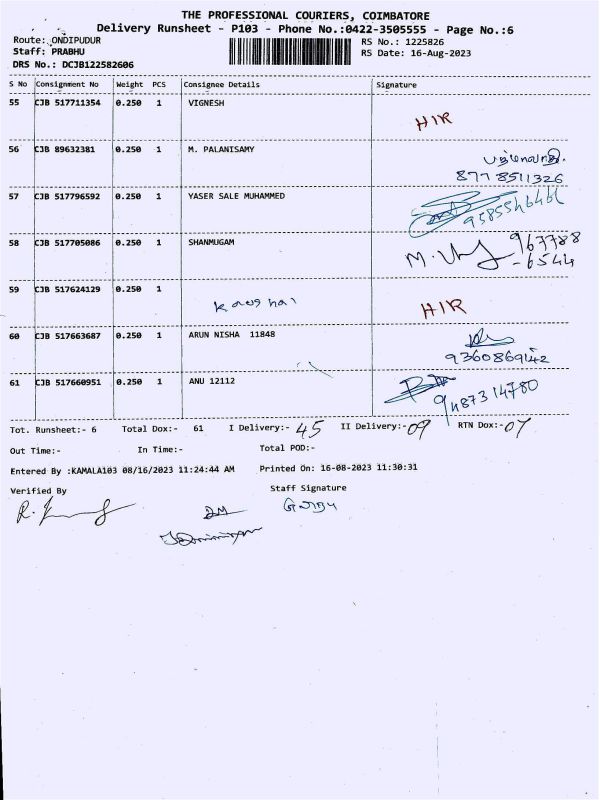 THE PROFESSIONAL COURIERS, COIMBATORE
Delivery Runsheet - P103 - Phone No.:0422-3505555 - Page No.:6
Route: ONDIPUDUR RS No.: 1225826
Staff: PRABHU RS Date: 16-Aug-2023
DRS No.: DCJB122582606
S No Consignment No Weight PCS Consignee Details Signature
55 CJB 517711354 0.250 1 VIGNESH
HIR
56 CJB 89632381 0.250 1 M. PALANISAMY
8778511326
57 CJB 517796592 0.250 1 YASER SALE MUHAMMED
58 CJB 517705086 0.250 1 SHANMUGAM 967788
-6544
59 CJB 517624129 0.250 1
HIR
60 CJB 517663687 0.250 1 ARUN NISHA 11848
9360869142
61 CJB 517660951 0.250 1 ANU 12112
9487314780
Tot. Runsheet:- 6 Total Dox:- 61 I Delivery:- 45 II Delivery:- 09 RTN Dox:- 07
Out Time:- In Time:- Total POD:-
Entered By :KAMALA103 08/16/2023 11:24:44 AM Printed On: 16-08-2023 11:30:31
Verified By Staff Signature